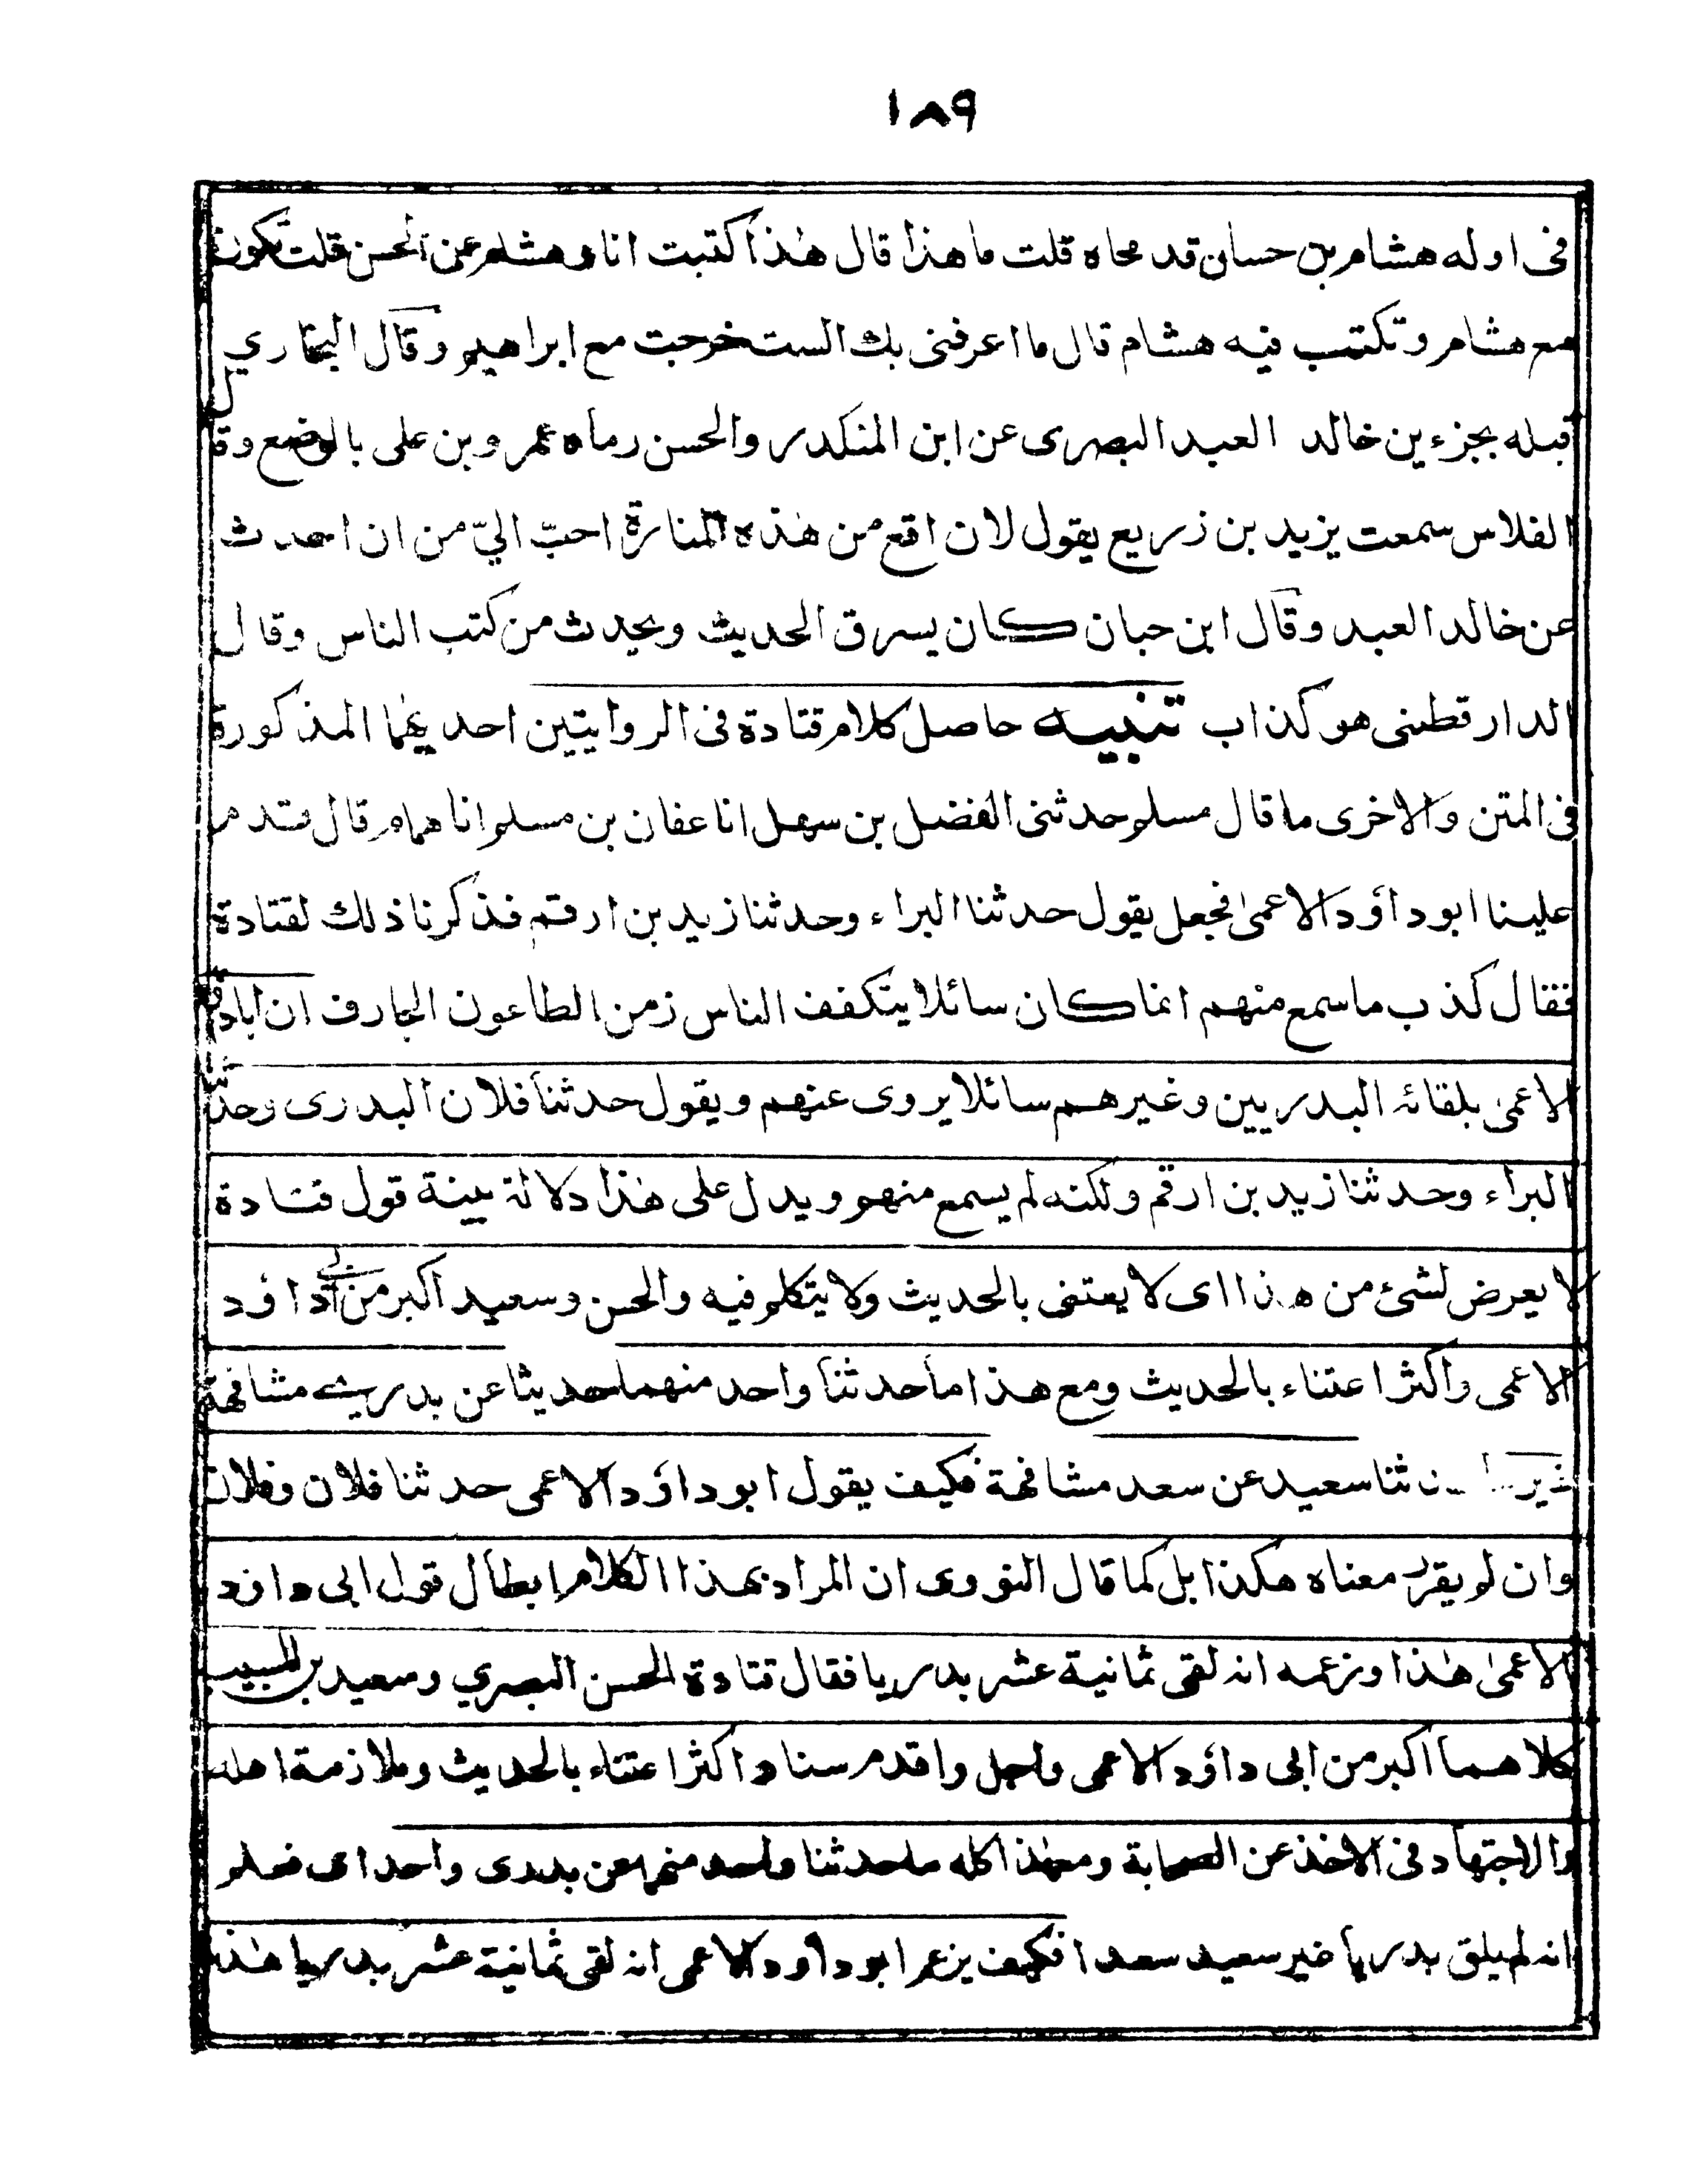 ١٨٩
فى اوله هشام بن حسان قد محاه قلت ما هذا قال هٰذا كتبت انا وهشام عن الحسن قلت تكون
مع هشام وتكتب فيه هشام قال ما اعرفنى بك الست خرجت مع ابراهيم وقال البخاري
قبله بجزء ين خالد العبد البصرى عن ابن المنكدر والحسن رماه عمرو بن على بالوضع وقال
الفلاس سمعت يزيد بن زريع يقول لان اقع من هٰذه المنارة احبّ اليّ من ان احدث
عن خالد العبد وقال ابن حبان كان يسرق الحديث ويحدث من كتب الناس وقال
الدارقطنى هو كذاب تنبيه حاصل كلام قتادة فى الروايتين احديٰهما المذكورة
فى المتن والاخرى ما قال مسلم حدثنى الفضل بن سهل انا عفان بن مسلم انا همام قال قدم
علينا ابو داؤد الاعمىٰ فجعل يقول حدثنا البراء وحدثنا زيد بن ارقم فذكرنا ذلك لقتادة
فقال كذب ما سمع منهم انما كان سائلا يتكفف الناس زمن الطاعون الجارف ان ابا داؤد
الاعمىٰ بلقائه البدريين وغيرهم سائلا يروى عنهم ويقول حدثنا فلان البدرى وحدثنا
البراء وحدثنا زيد بن ارقم ولكنه لم يسمع منهم ويدل على هٰذا دلالة بينة قول قتادة
لا يعرض لشئ من هذا اى لا يعتنى بالحديث ولا يتكلم فيه والحسن وسعيد اكبر من ابى داؤد
الاعمى واكثر اعتناء بالحديث ومع هذا ما حدثنا واحد منهما حديثا عن بدرى مشافهة
ثنا سعيد عن سعد مشافهة فكيف يقول ابو داؤد الاعمى حدثنا فلان وفلان
وان لم يقرر معناه هكذا بل كما قال النووى ان المراد بهذا الكلام ابطال قول ابى داؤد
الاعمىٰ هٰذا وزعمه انه لقى ثمانية عشر بدريا فقال قتادة الحسن البصري وسعيد بن المسيب
كلاهما اكبر من ابى داؤد الاعمى واجل واقدم سنا واكثر اعتناء بالحديث وملازمة اهله
والاجتهاد فى الاخذ عن الصحابة ومع هٰذا كله ما حدثنا واحد منهما عن بدرى واحد اى فعلم
انه لم يلق بدريا غير سعيد سعدا فكيف يزعم ابو داؤد الاعمى انه لقى ثمانية عشر بدريا هٰذا